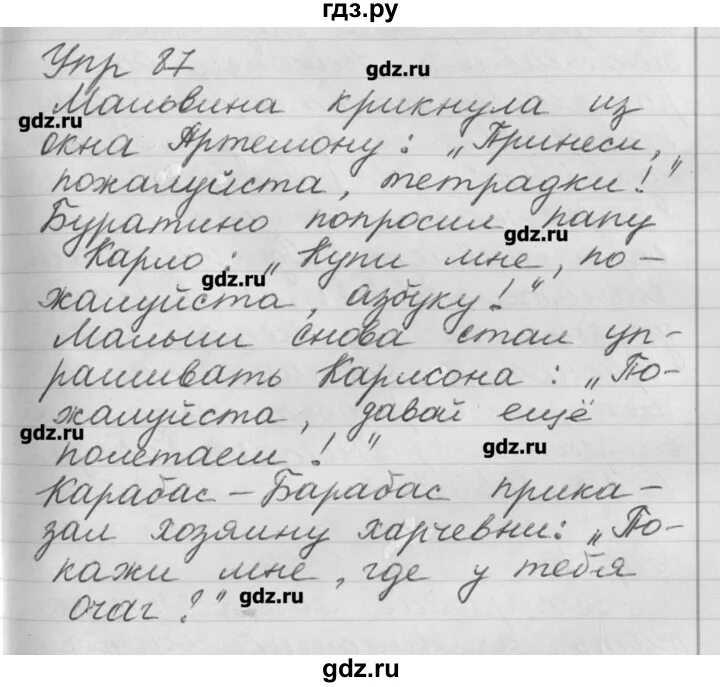 гдз.ру
Упр 87
gdz.ru
Мальвина крикнула из
gdz.ru
окна Артемону: „Принеси,
пожалуйста, тетрадки!"
Буратино попросил папу
gdz.ru
Карло: „Купи мне, по-
gdz.ru
жалуйста, азбуку!"
Малыш снова стал уп-
рашивать Карлсона: „По-
жалуйста, давай ещё
gdz.ru
полетаем!"
gdz.ru
Карабас-Барабас прика-
зал хозяину харчевни: „По-
кажи мне, где у тебя
очаг?"
gdz.ru
gdz.ru